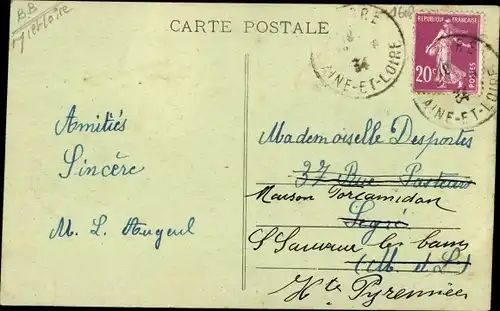 B.B
CARTE POSTALE
REPUBLIQUE FRANÇAISE
20c
POSTES
34
34
AINE-ET-LOIRE
AINE-ET-LOIRE
Amitiés
Sincère
M. L. Augeul
Mademoiselle Desportes
37 Rue Pasteur
Maison Torcamidan
Segré
St Sauveur les bains
(M et L)
Htes Pyrennées